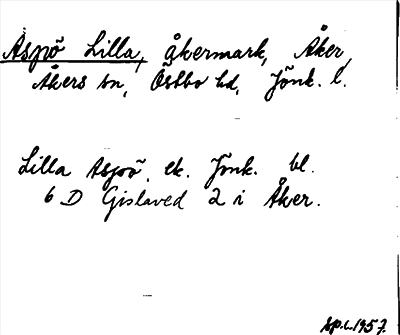 Aspö Lilla, åkermark, Åker,
Åkers sn, Östbo hd, Jönk. l.
Lilla Aspö, ek. Jönk. bl.
6 D Gislaved 2 i Åker.
1957.